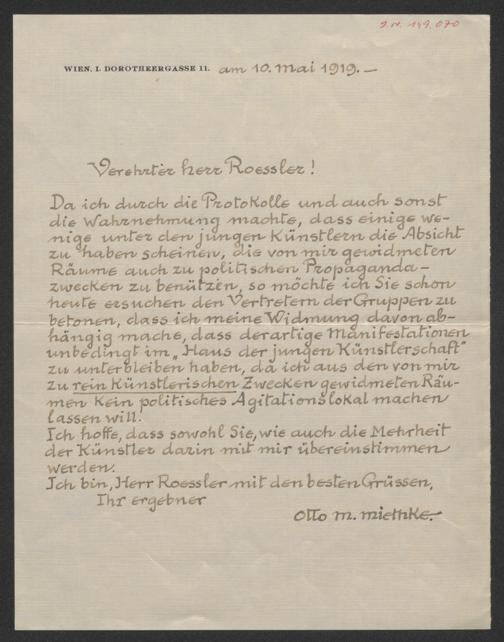 J.N. 149.070
WIEN, I. DOROTHEERGASSE 11. am 10. Mai 1919. —
Verehrter Herr Roessler!
Da ich durch die Protokolle und auch sonst
die Wahrnehmung machte, dass einige we-
nige unter den jungen Künstlern die Absicht
zu haben scheinen, die von mir gewidmeten
Räume auch zu politischen Propaganda-
zwecken zu benützen, so möchte ich Sie schon
heute ersuchen den Vertretern der Gruppen zu
betonen, dass ich meine Widmung davon ab-
hängig mache, dass derartige Manifestationen
unbedingt im „Haus der jungen Künstlerschaft"
zu unterbleiben haben, da ich aus den von mir
zu rein Künstlerischen Zwecken gewidmeten Räu-
men kein politisches Agitationslokal machen
lassen will.
Ich hoffe, dass sowohl Sie, wie auch die Mehrheit
der Künstler darin mit mir übereinstimmen
werden.
Ich bin, Herr Roessler mit den besten Grüssen,
Ihr ergebner
Otto M. Miethke.